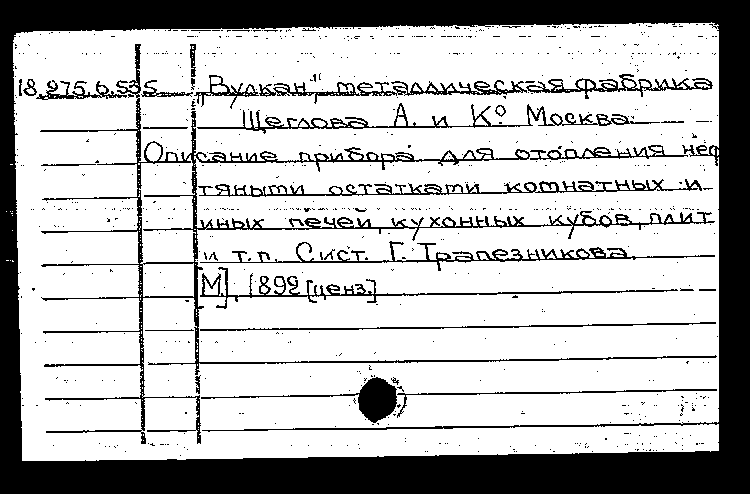 18.275.6.535 „Вулкан", металлическая фабрика
Щеглова А. и К° Москва.
Описание прибора для отопления неф
тяными остатками комнатных и
иных печей, кухонных кубов, плит
и т.п. Сист. Г. Трапезникова.
[М], 1892 [ценз.]